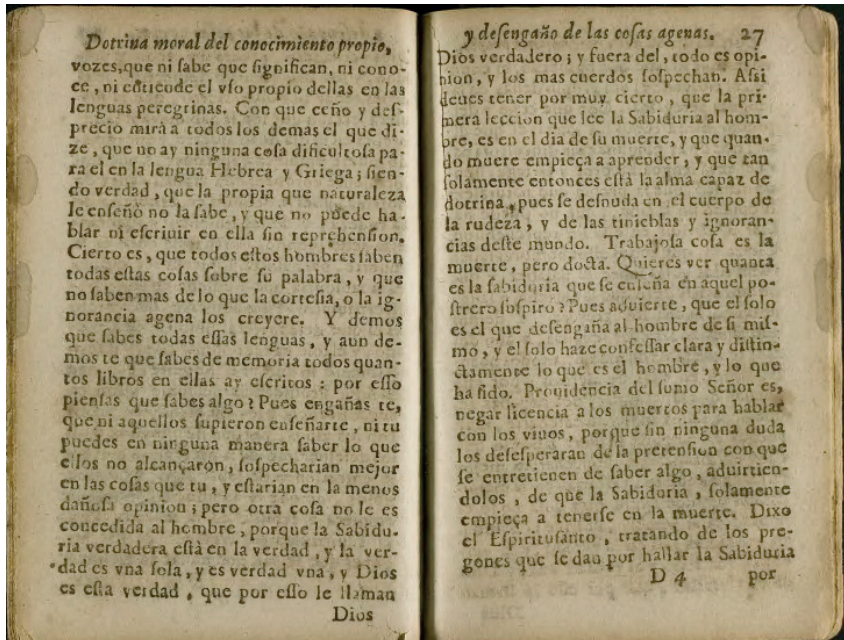 Dotrina moral del conocimiento propio,
vozes,que ni ſabe que ſignifican, ni cono-
ce, ni entiende el vſo propio dellas en las
lenguas peregrinas. Con que ceño y deſ-
precio mirà a todos los demas el que di-
ze, que no ay ninguna coſa dificultoſa pa-
ra el en la lengua Hebrea y Griega; ſien-
do verdad, que la propia que naturaleza
le enſeñò no la ſabe, y que no puede ha-
blar ni eſcriuir en ella ſin reprehenſion.
Cierto es, que todos eſtos hombres ſaben
todas eſtas coſas ſobre ſu palabra, y que
no ſaben mas de lo que la corteſia, o la ig-
norancia agena los creyere. Y demos
que ſabes todas eſſas lenguas, y aun de-
mos te que ſabes de memoria todos quan-
tos libros en ellas ay eſcritos: por eſſo
pienſas que ſabes algo? Pues engañas te,
que ni aquellos ſupieron enſeñarte, ni tu
puedes en ninguna manera ſaber lo que
ellos no alcançaron, ſoſpecharian mejor
en las coſas que tu, y eſtarian en la menos
dañoſa opinion; pero otra coſa no le es
concedida al hombre, porque la Sabidu-
ria verdadera eſtà en la verdad, y la ver-
dad es vna ſola, y es verdad vna, y Dios
es eſta verdad, que por eſſo le llaman
Dios
y deſengaño de las coſas agenas. 27
Dios verdadero; y fuera del, todo es opi-
nion, y los mas cuerdos ſoſpechan. Aſſi
deues tener por muy cierto, que la pri-
mera leccion que lee la Sabiduria al hom-
bre, es en el dia de ſu muerte, y que quan-
do muere empieça a aprender, y que tan
ſolamente entonces eſtà la alma capaz de
dotrina, pues ſe deſnuda en el cuerpo de
la rudeza, y de las tinieblas y ignoran-
cias deſte mundo. Trabajoſa coſa es la
muerte, pero docta. Quieres ver quanta
es la ſabiduria que ſe enſeña en aquel po-
ſtrero ſoſpiro? Pues aduierte, que el ſolo
es el que deſengaña al hombre de ſi miſ-
mo, y el ſolo haze confeſſar clara y diſtin-
ctamente lo que es el hombre, y lo que
ha ſido. Prouidencia del ſumo Señor es,
negar licencia a los muertos para hablar
con los viuos, porque ſin ninguna duda
los deſeſperaran de la pretenſion con que
ſe entretienen de ſaber algo, aduirtien-
dolos, de que la Sabiduria, ſolamente
empieça a tenerſe en la muerte. Dixo
el Eſpirituſanto, tratando de los pre-
gones que ſe dan por hallar la Sabiduria
D 4 por